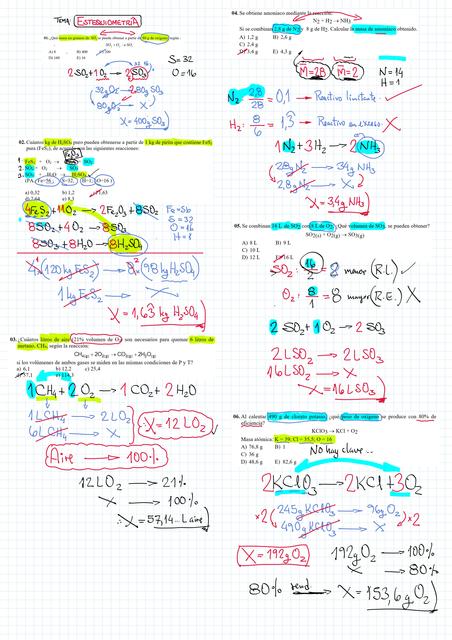 TEMA: ESTEQUIOMETRÍA
O₂ se puede obtener a partir de 80 g de oxígeno según:
SO₂ + O₂ → SO₃
B) 400
D) 160
E) 16
S=32
O=16
2SO₂+1O₂ → 2SO₃
32g O₂ → 160g SO₃
80g O₂ → X
X=400g SO₃
02. Cuántos kg de H₂SO₄ puro pueden obtenerse a partir de 1 kg de pirita que contiene FeS₂
pura (FeS₂), de acuerdo con las siguientes reacciones:
FeS₂ + O₂ → SO₂
SO₂ + O₂ → SO₃
SO₃ + H₂O → H₂SO₄
(PA: Fe=56; S=32; H=1; O=16)
a) 0,32
b) 1,2
c) 1,63
d) 2,64
e) 8,3
4FeS₂+11O₂ → 2Fe₂O₃+8SO₂
8SO₂+4O₂ → 8SO₃
8SO₃+8H₂O → 8H₂SO₄
Fe=56
S=32
O=16
H=1
4x(120kg FeS₂) → 8x(98kg H₂SO₄)
1kg FeS₂ → X
X=1,63 kg H₂SO₄
03. ¿Cuántos litros de aire (21% volumen de O₂) son necesarios para quemar 6 litros de
metano, CH₄, según la reacción:
CH₄(g) + 2O₂(g) → CO₂(g) + 2H₂O(g)
si los volúmenes de ambos gases se miden en las mismas condiciones de P y T?
a) 6,1
b) 12,2
c) 25,4
d) 57,1
e) 114,3
1CH₄+2O₂ → 1CO₂+2H₂O
1LCH₄ → 2LO₂
6LCH₄ → X
X=12LO₂
Aire → 100%
12LO₂ → 21%
X → 100%
∴X=57,14...L aire
04. Se obtiene amoniaco mediante la reacción:
N₂ + H₂ → NH₃
Si se combinan 2,8 g de N₂ y 8 g de H₂. Calcular la masa de amoniaco obtenido.
A) 1,2 g
B) 2,6 g
C) 2,4 g
D) 3,4 g
E) 4,3 g
M=28
M=2
N=14
H=1
N₂: 2,8/28 = 0,1 → Reactivo limitante ✓
H₂: 8/6 = 1,3 → Reactivo en exceso X
1N₂+3H₂ → 2NH₃
28g N₂ → 34g NH₃
2,8g N₂ → X
X=3,4g NH₃
05. Se combinan 16 L de SO₂ con 8 L de O₂. ¿Qué volumen de SO₃ se pueden obtener?
SO₂(g) + O₂(g) → SO₃(g)
A) 8 L
B) 9 L
C) 10 L
D) 12 L
E) 16 L
SO₂: 16/2 = 8 menor (R.L.) ✓
O₂: 8/1 = 8 mayor (R.E.) X
2SO₂+1O₂ → 2SO₃
2LSO₂ → 2LSO₃
16LSO₂ → X
X=16LSO₃
06. Al calentar 490 g de clorato potásico, ¿qué peso de oxígeno se produce con 80% de
eficiencia?
KClO₃ → KCl + O₂
Masa atómica: K = 39; Cl = 35,5; O = 16
A) 76,8 g
B) 1
C) 36 g
D) 48,6 g
E) 82,6 g
No hay clave...
2KClO₃ → 2KCl+3O₂
x2 ( 245g KClO₃ → 96g O₂ ) x2
490g KClO₃ → X
X=192g O₂
192g O₂ → 100%
X → 80%
80% rend → X=153,6g O₂